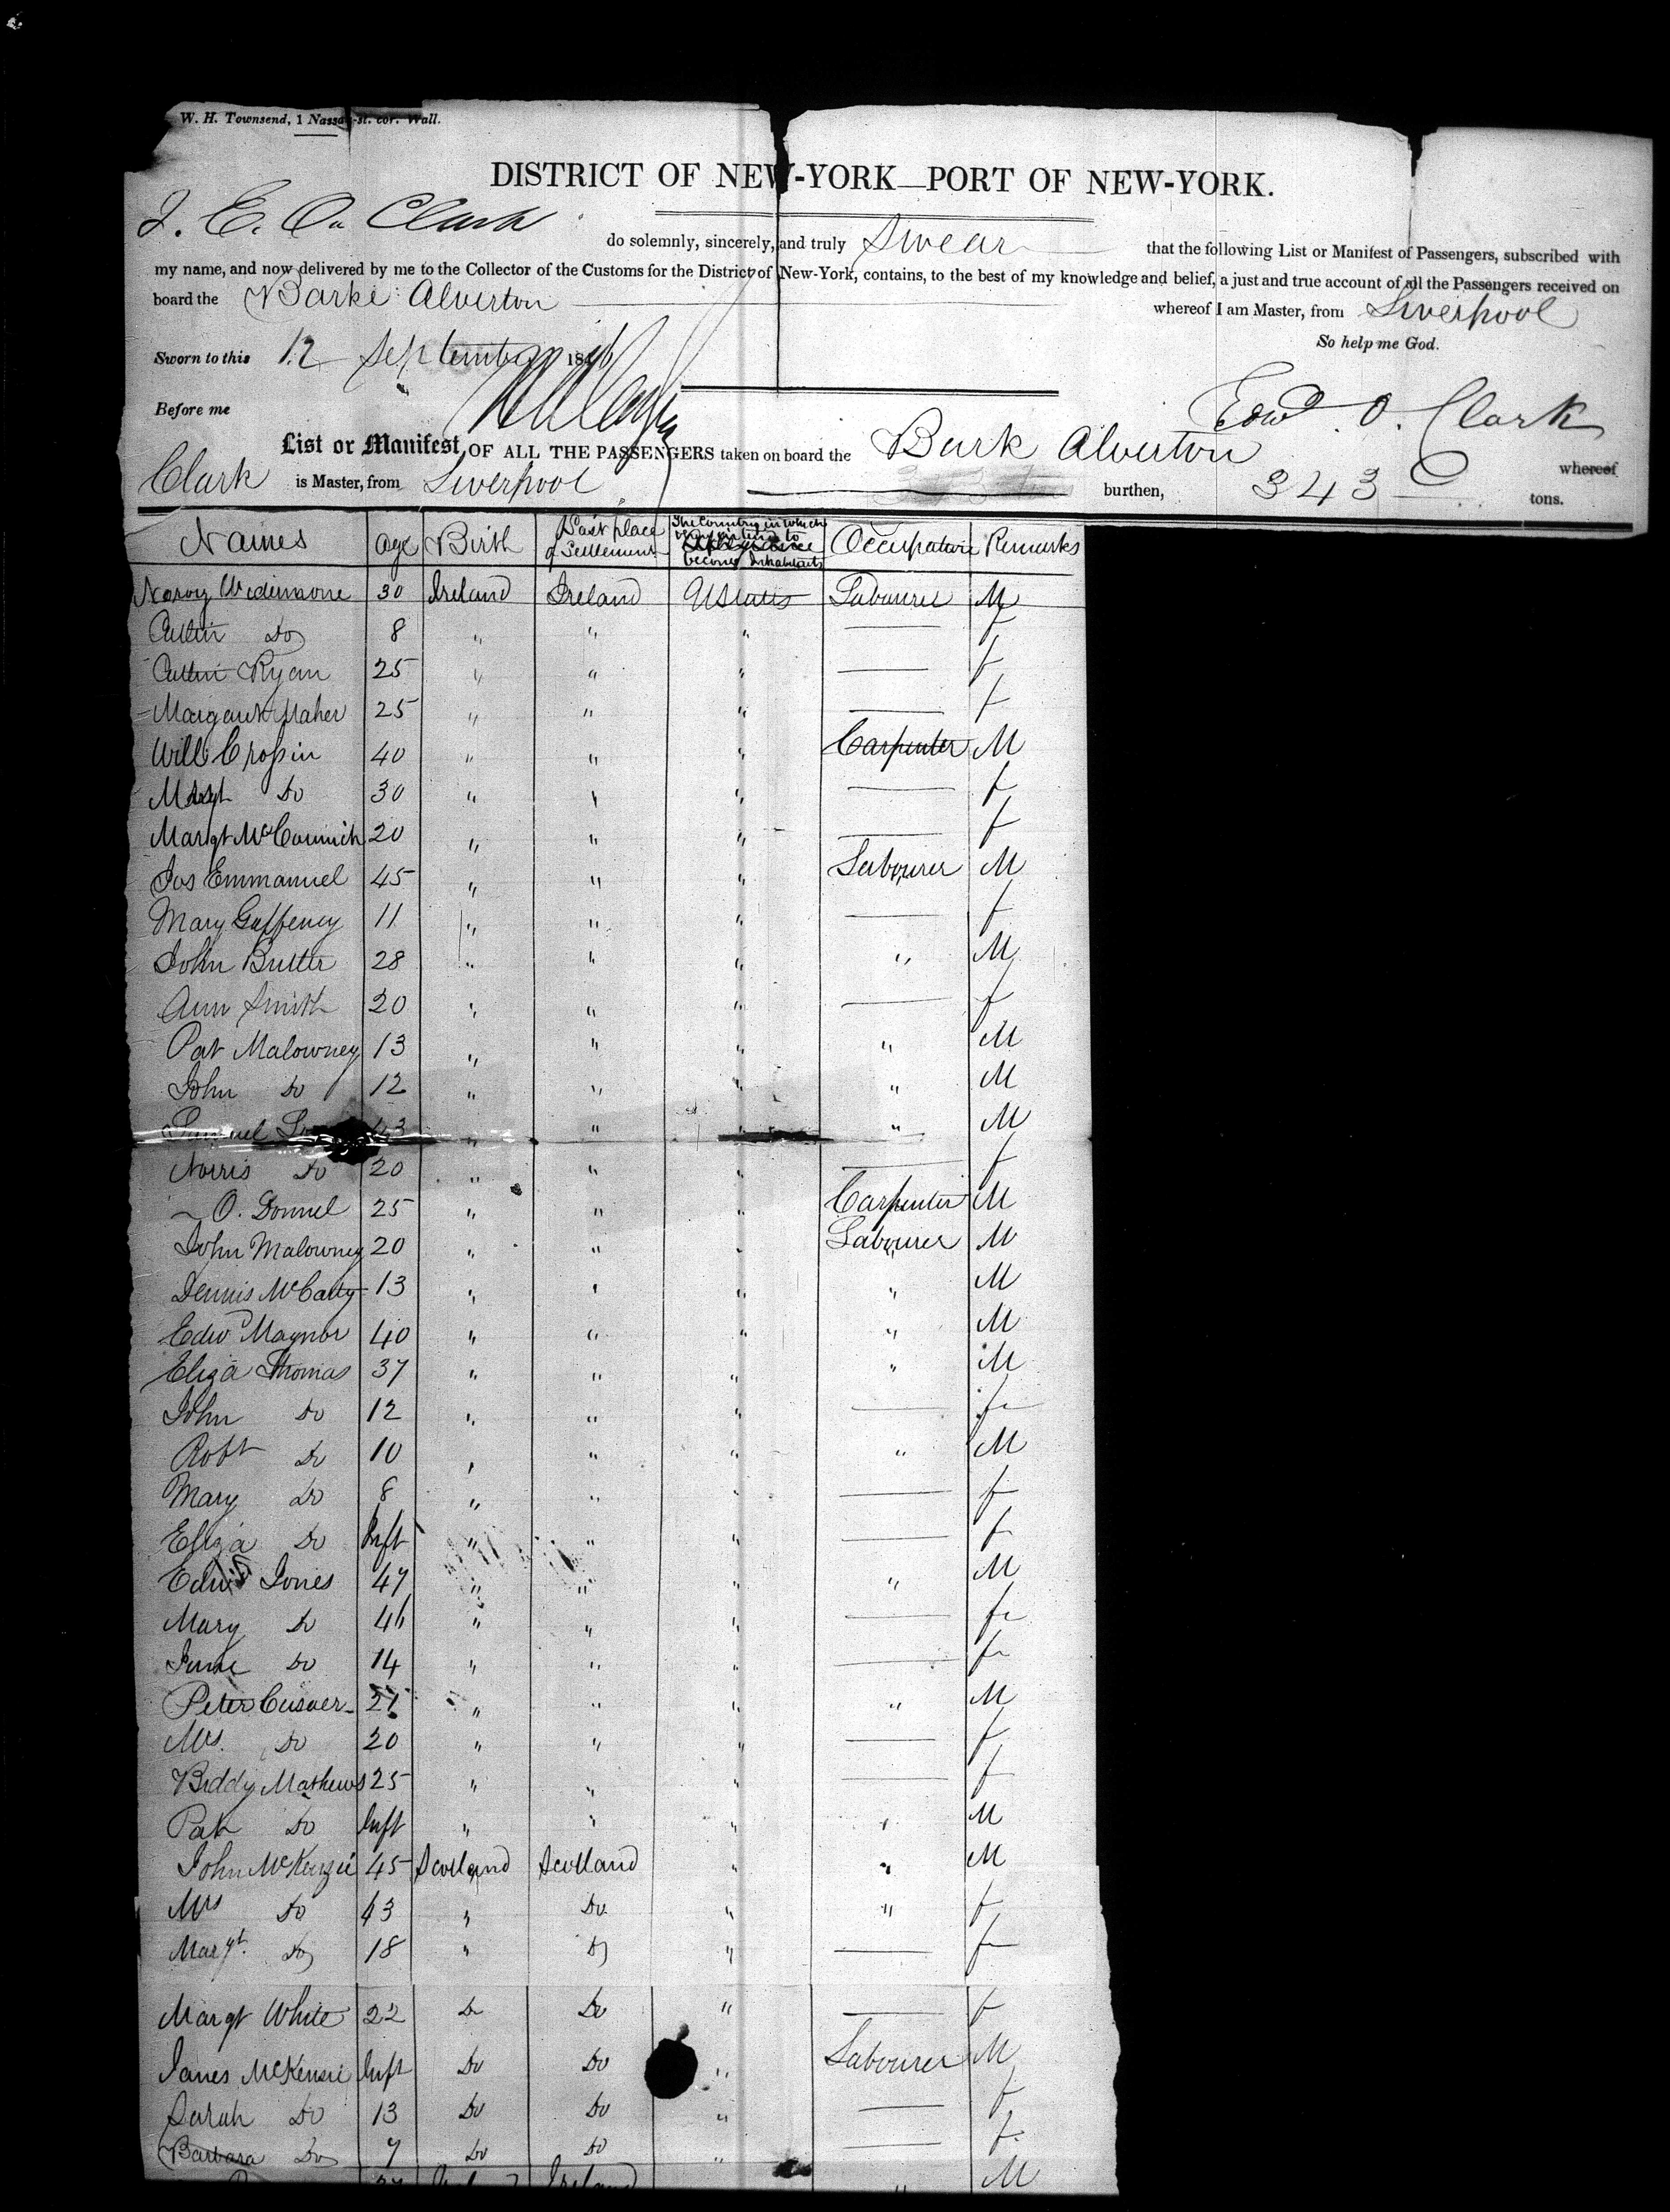 W. H. Townsend, 1 Nassau-st. cor. Wall.
DISTRICT OF NEW-YORK—PORT OF NEW-YORK.
I. E. O. Clark do solemnly, sincerely, and truly Swear that the following List or Manifest of Passengers, subscribed with
my name, and now delivered by me to the Collector of the Customs for the District of New-York, contains, to the best of my knowledge and belief, a just and true account of all the Passengers received on
board the Barke Alverton whereof I am Master, from Liverpool
So help me God.
Sworn to this 12 September 1846
Before me Edwd. O. Clark
List or Manifest OF ALL THE PASSENGERS taken on board the Bark Alverton whereof
Clark is Master, from Liverpool burthen, 343 tons.
Names Age Birth Last place of Settlement The Country in which they intend to become Inhabitants Occupation Remarks
30 Ireland Ireland UStates Labourer M
Do 8 " " " — f
Ryan 25 " " " — f
Margaret Maher 25 " " " — f
Will Crossin 40 " " " Carpenter M
Do 30 " " " — f
Margt McCormick 20 " " " — f
Jos Emmanuel 45 " " " Labourer M
Mary Gaffeney 11 " " " — f
John Butler 28 " " " " M
Ann Smith 20 " " " — f
Pat Malowney 13 " " " " M
John Do 12 " " " " M
" " " " M
Norris Do 20 " " " — f
— O. Donnel 25 " " " Carpenter M
John Malowney 20 " " " Labourer M
Dennis McCatty 13 " " " " M
Edwd Maynor 40 " " " " M
Eliza Thomas 37 " " " " M
John Do 12 " " " — f
Robt Do 10 " " " " M
Mary Do 8 " " " — f
Eliza Do Inft " " " — f
Jones 47 " " " " M
Mary Do 46 " " " — f
Jane Do 14 " " " — f
Peter Cusner 21 " " " " M
Mrs. Do 20 " " " — f
Biddy Mathews 25 " " " — f
Pat Do Inft " " " " M
John McKenzie 45 Scotland Scotland " " M
Mrs Do 43 " Do " " f
Margt. Do 18 " Do " — f
Margt White 22 Do Do " — f
James McKensie Inft Do Do " Labourer M
Sarah Do 13 Do Do " — f
Barbara Do 7 Do Do " — f
Ireland " M